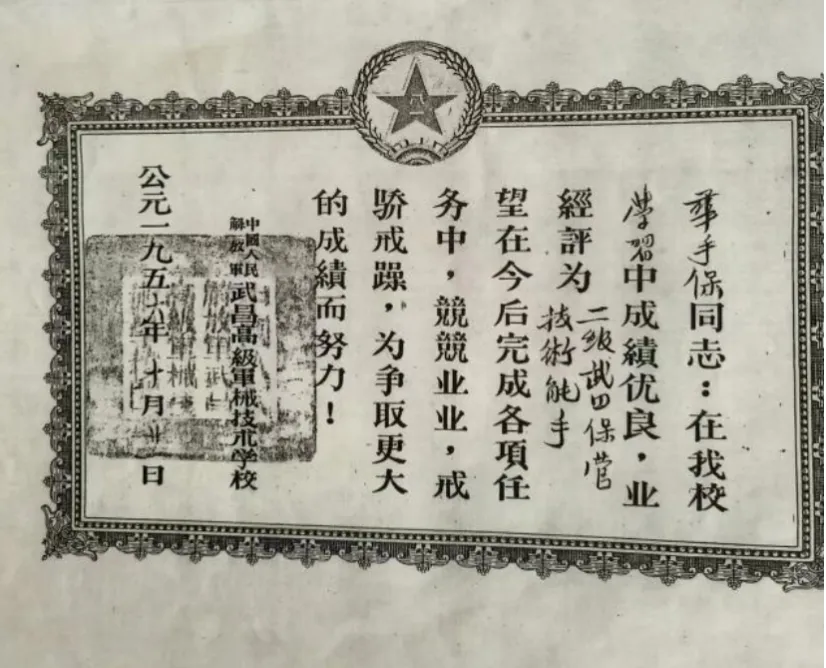 八一
手保同志：在我校
學習中成績优良，业
經評为
二级武四保营
技術能手
望在今后完成各項任
务中，競競业业，戒
骄戒躁，为争取更大
的成績而努力！
中國人民
解放軍
武昌高級軍械技朮学校
公元一九五六年十月 日